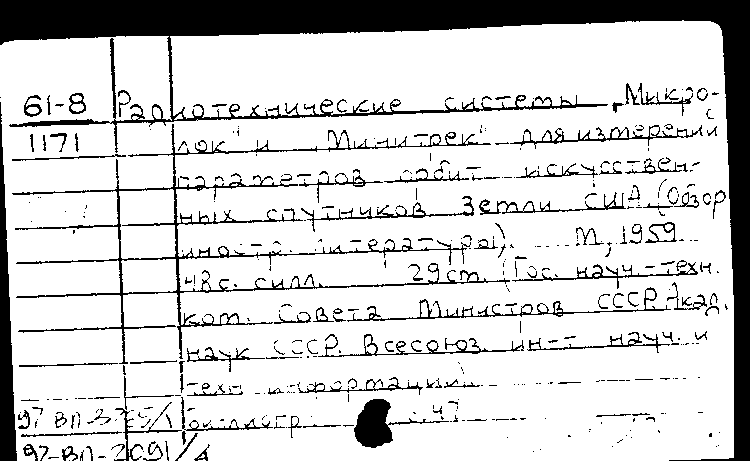 61-8 Радиотехнические системы „Микро-
1171 лок" и „Минитрек" для измерений
параметров орбит искусствен-
ных спутников Земли США. (Обзор
иностр. литературы). М., 1959.
48 с. с илл. 29 см. (Гос. науч.-техн.
ком. Совета Министров СССР. Акад.
наук СССР. Всесоюз. ин-т науч. и
техн. информации).
Библиогр. с. 47
97-ВЛ-2091/4